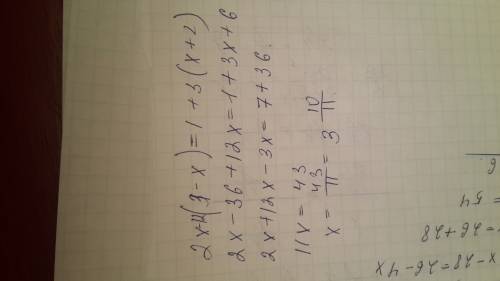 2x-12(3-x)=1+3(x+2)
2x-36+12x=1+3x+6
2x+12x-3x=7+36
11x=43
x=43/11=3 10/11
x-28=26-4x
=26+28
=54